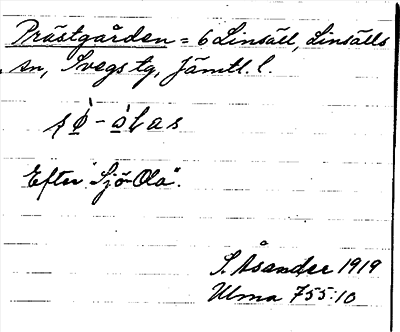 Prästgården = 6 Linsäll, Linsälls
sn, Svegs tg, Jämtl. l.
ʂø̀-òlas
Efter "Sjö-Ola".
S. Åsander 1919
Ulma 755:10